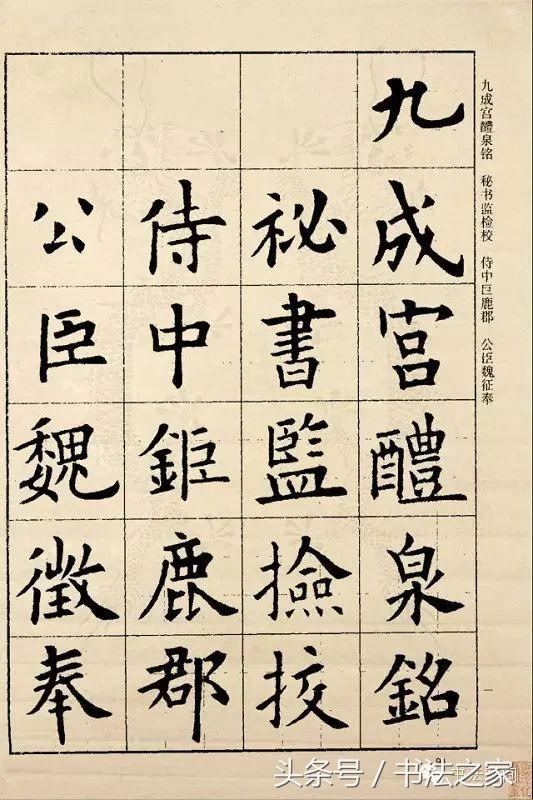 九成宮醴泉銘
祕書監撿挍
侍中鉅鹿郡
公臣魏徵奉
九成宫醴泉铭 秘书监检校 侍中巨鹿郡 公臣魏征奉
头条号／书法之家